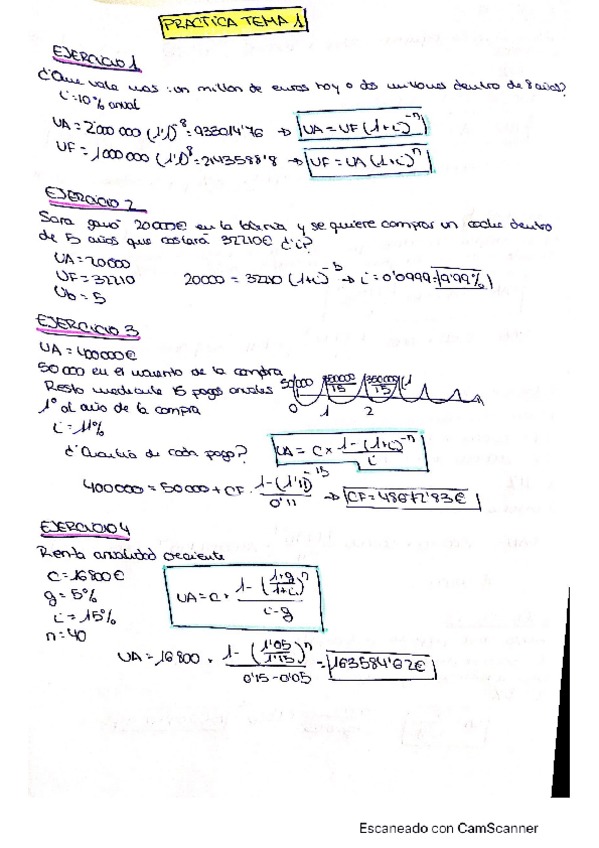 PRACTICA TEMA 1
EJERCICIO 1
¿Que vale mas: un millon de euros hoy o dos millones dentro de 8 años?
i=10% anual
VA = 2'000 000 (1'1)^8 = 933014'76 → VA = VF (1+i)^-n
VF = 1000000 (1'1)^8 = 2143588'8 → VF = VA (1+i)^n
EJERCICIO 2
Sara ganó 20000€ en la y se quiere comprar un coche dentro
de 5 años que costará 32210€ ¿i?
VA = 20000
VF = 32210
Nb = 5
20000 = 32210 (1+i)^-5 → i = 0'0999 = 9'99%
EJERCICIO 3
VA = 400000€
50 000 en el momento de la compra
Resto mediante 15 pagos anuales
50000 350000/15 350000/15
1º al año de la compra
0 1 2
i = 11%
¿Cuantía de cada pago?
VA = C × (1-(1+i)^-n)/i
400000 = 50000 + CF · (1-(1'11)^-15)/0'11 → CF = 48672'83€
EJERCICIO 4
Renta anualidad creciente
C = 16800€
g = 5%
i = 15%
n = 40
VA = C · (1-((1+g)/(1+i))^n)/(i-g)
VA = 16800 · (1-(1'05/1'15)^n)/(0'15-0'05) = 163584'62€
Escaneado con CamScanner